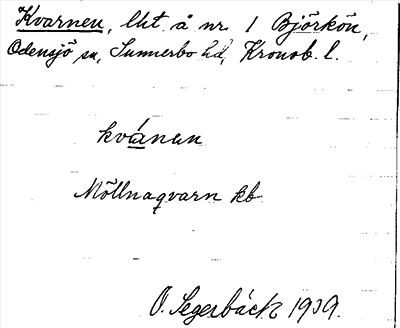 Kvarnen, lht å nr 1 Björkön,
Odensjö sn, Sunnerbo hd, Kronob. l.
kvánan
Möllnaqvarn kb
O. Segerbäck 1939.